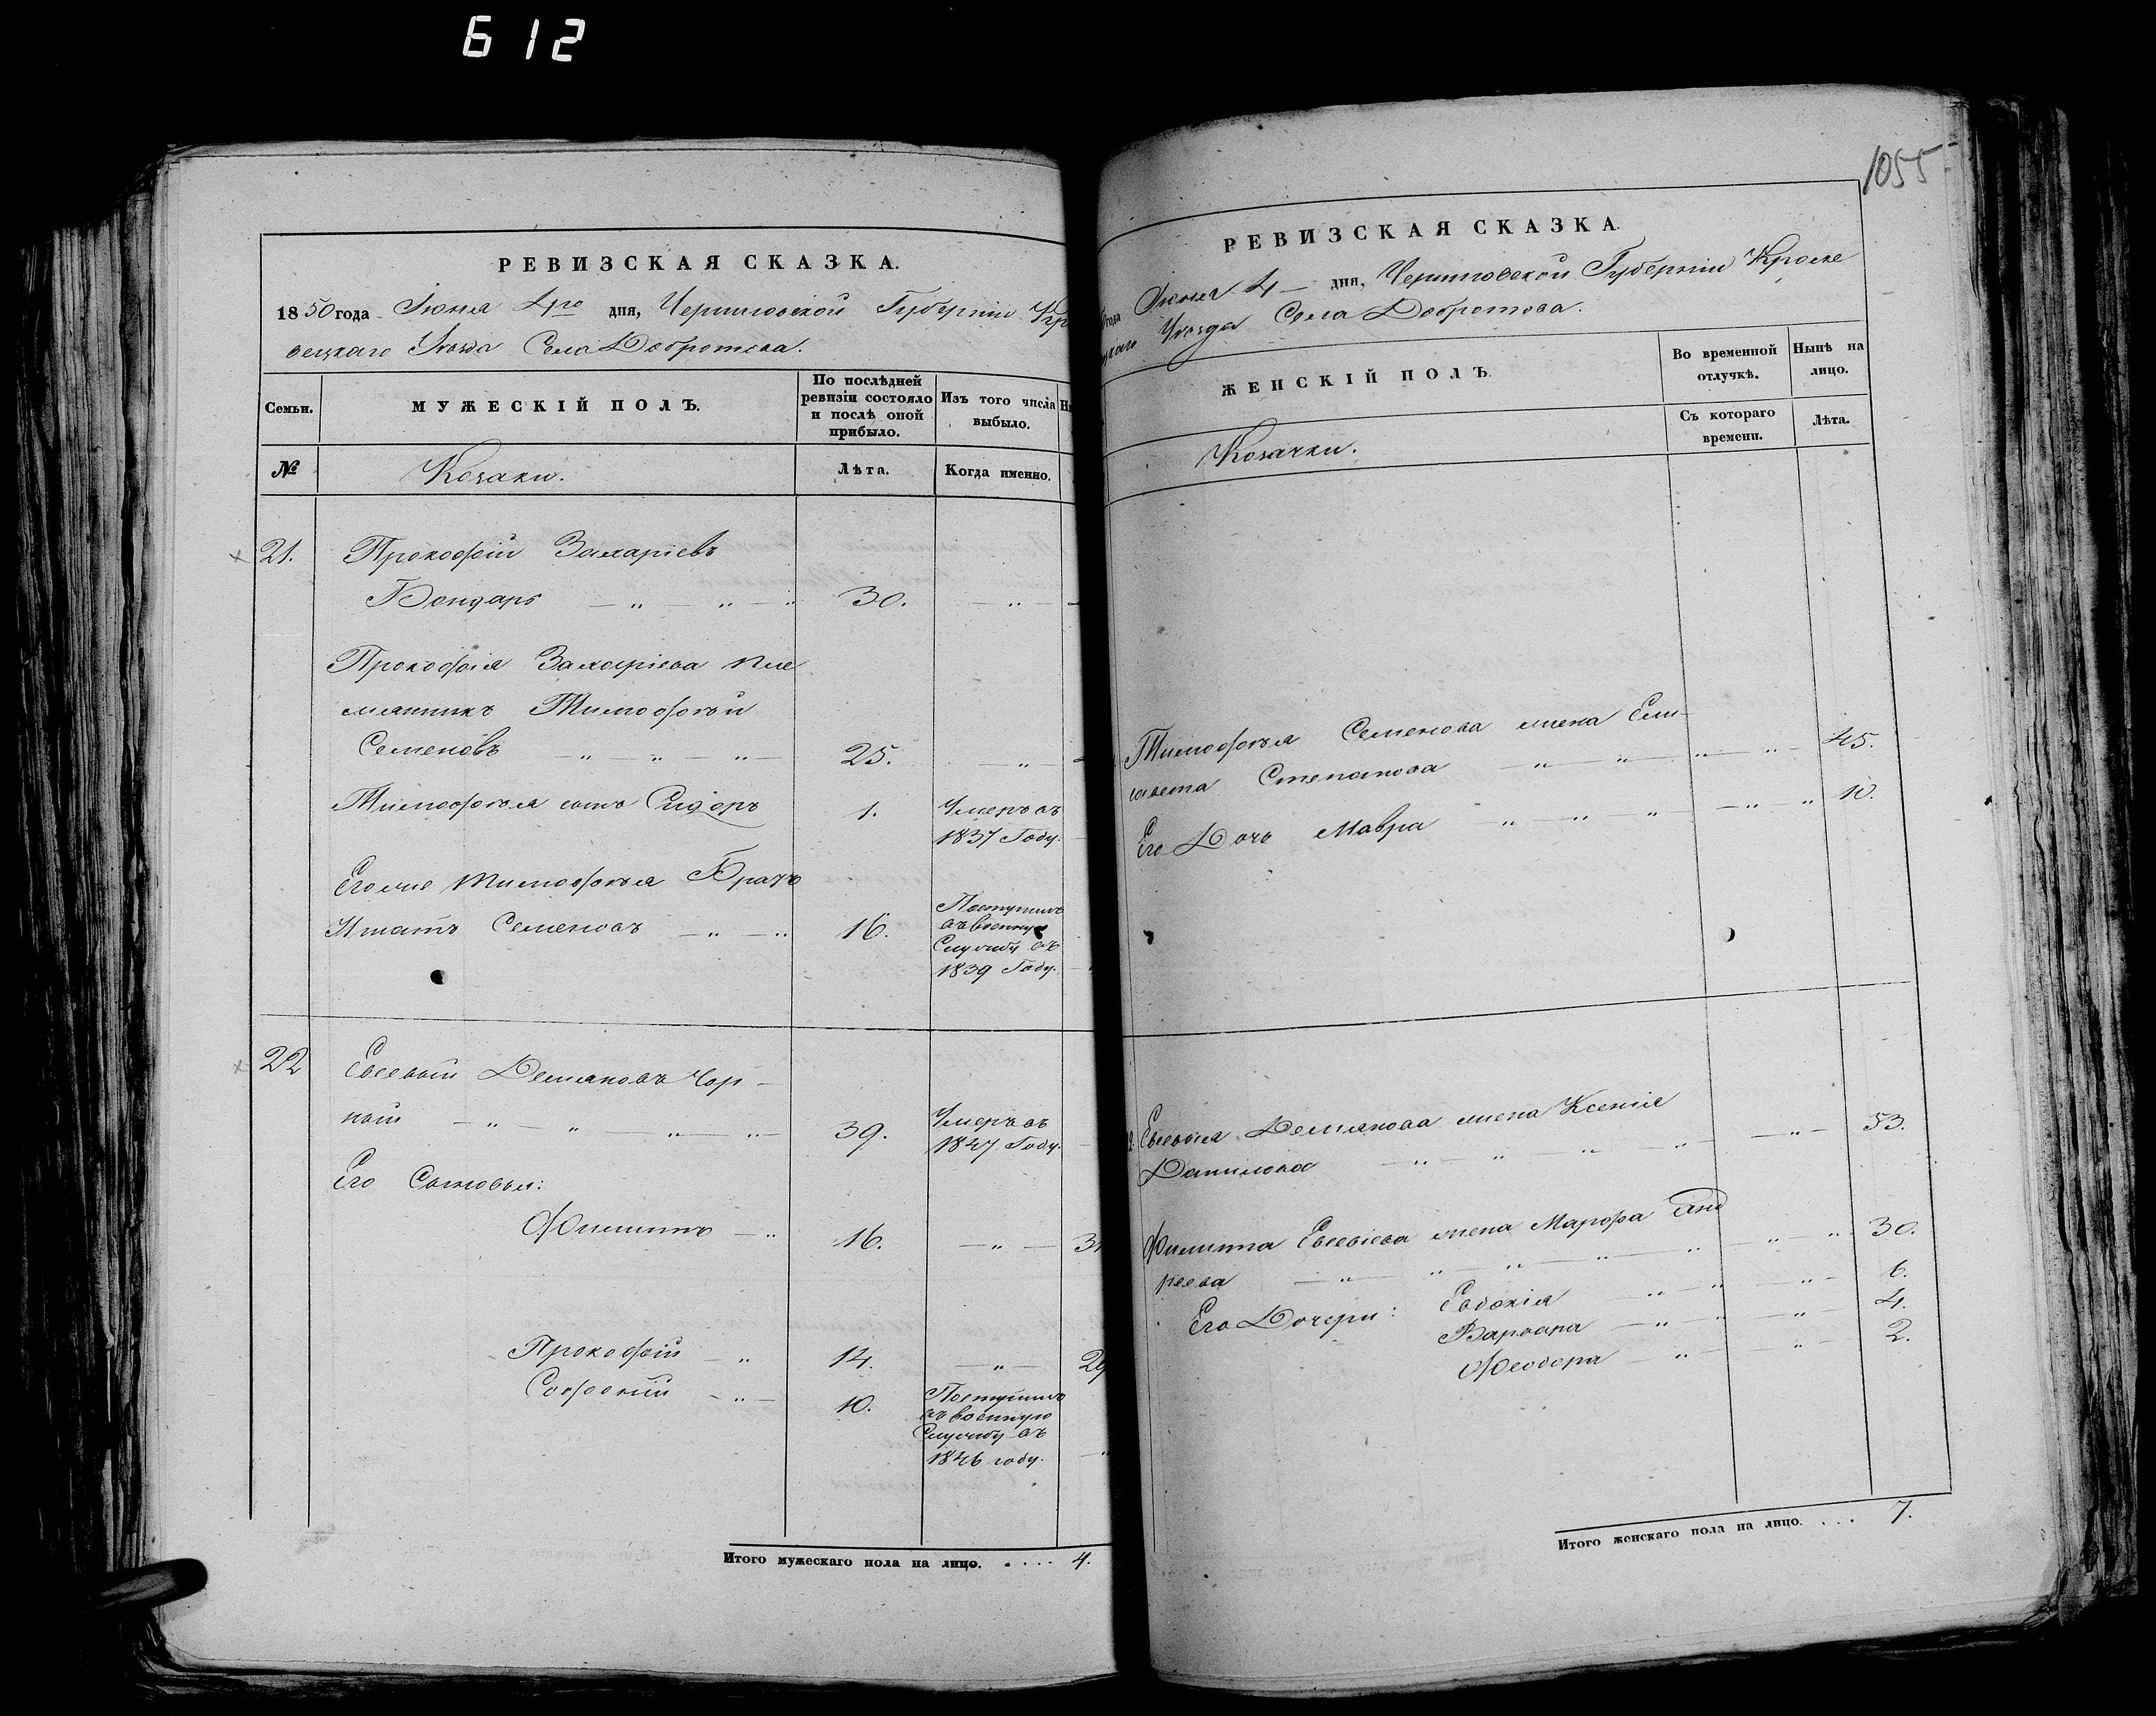 612
1055
РЕВИЗСКАЯ СКАЗКА.
1850 года Іюня 4го дня, Черниговской Губерніи Кро
вецкаго Уѣзда Села Добротова.
Семьи.
МУЖЕСКІЙ ПОЛЪ.
По послѣдней
ревизіи состояло
и послѣ оной
прибыло.
Изъ того числа
выбыло.
№
Козаки.
Лѣта.
Когда именно.
21. Прокофій Захаріевъ
Бондарь — „ — „ — „ 30. — „ —
Прокофія Захаріева пле
мянникъ Тимофѣй
Семеновъ — „ — „ — „ — 25. — „ —
Тимофѣя сынъ Сидоръ 1. Умеръ въ
1837 Году.
Его же Тимофѣя Братъ
Игнатъ Семеновъ — „ — „ 16. Поступилъ
въ военную
Службу въ
1839 Году.
22 Евсевій Демяновъ Чор-
ный — „ — „ — „ — „ — 39. Умеръ въ
1847 Году.
Его Сыновья:
Филиппъ — „ 16. — „ —
Прокофій — „ 14. — „ —
Софроній — „ — 10. Поступилъ
въ военную
Службу въ
1846 году.
Итого мужескаго пола на лицо. . . . . 4.
РЕВИЗСКАЯ СКАЗКА.
года Іюня 4 — дня, Черниговской Губерніи Кроле
вецкаго Уѣзда Села Добротова.
ЖЕНСКІЙ ПОЛЪ.
Во временной
отлучкѣ.
Нынѣ на
лицо.
Козачки.
Съ котораго
времени.
Лѣта.
Тимофѣя Семенова жена Ели-
савета Степанова — „ — „ — „ — „ — 45.
Его Дочь Мавра — „ — „ — „ — „ — „ 10.
Евсевія Демянова жена Ксенія
Данилова — „ — „ — „ — „ — „ — 53.
Филиппа Евсевіева жена Марфа Анд
реева — „ — „ — „ — „ — „ — „ — „ 30.
Его Дочери: Евдокія — „ — „ — „ — 6.
Варвара — „ — „ — „ — 4.
Феодора — „ — „ — 2.
Итого женскаго пола на лицо. . . . 7.